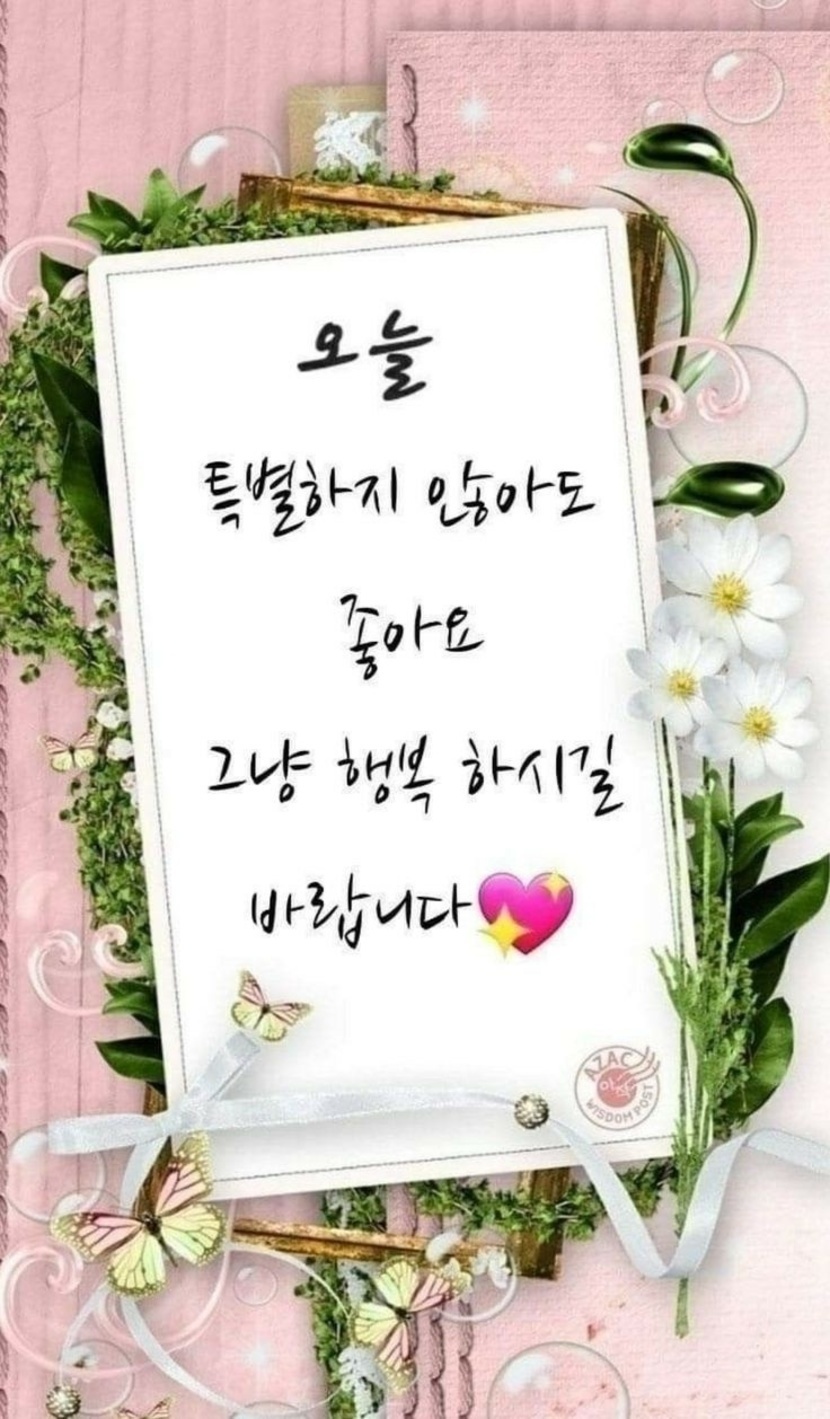 오늘
특별하지 않아도
좋아요
그냥 행복 하시길
바랍니다💖
AZAC
아작
WISDOM POST